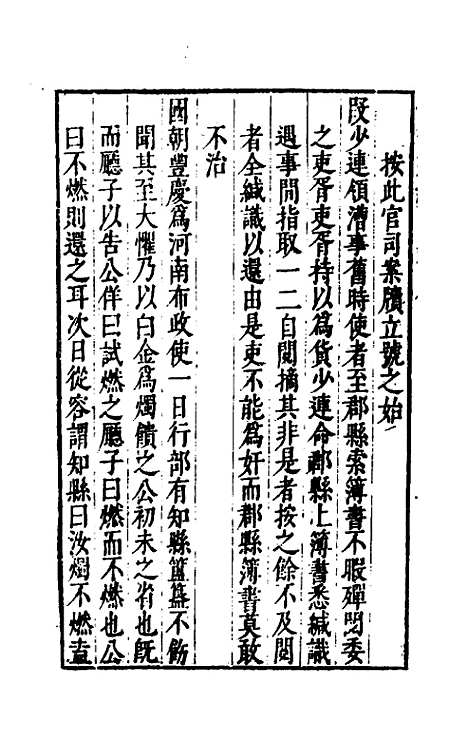 按此官司案牘立號之始
段少連領漕事舊時使者至郡縣索簿書不暇殫閱委
之吏胥吏胥持以爲貨少連命郡縣上簿書悉緘識
遇事間指取一二自閱摘其非是者按之餘不及閱
者全緘識以還由是吏不能爲奸而郡縣簿書莫敢
不治
國朝豐慶爲河南布政使一日行部有知縣簠簋不飭
聞其至大懼乃以白金爲燭饋之公初未之省也旣
而廳子以告公佯曰試燃之廳子曰燃而不燃也公
曰不燃則還之耳次日從容謂知縣曰汝燭不燃盍